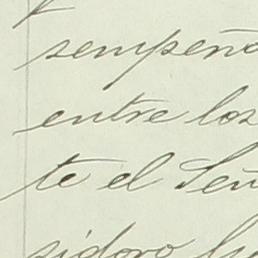 sempeña
entre los
te el Señ
sidoro